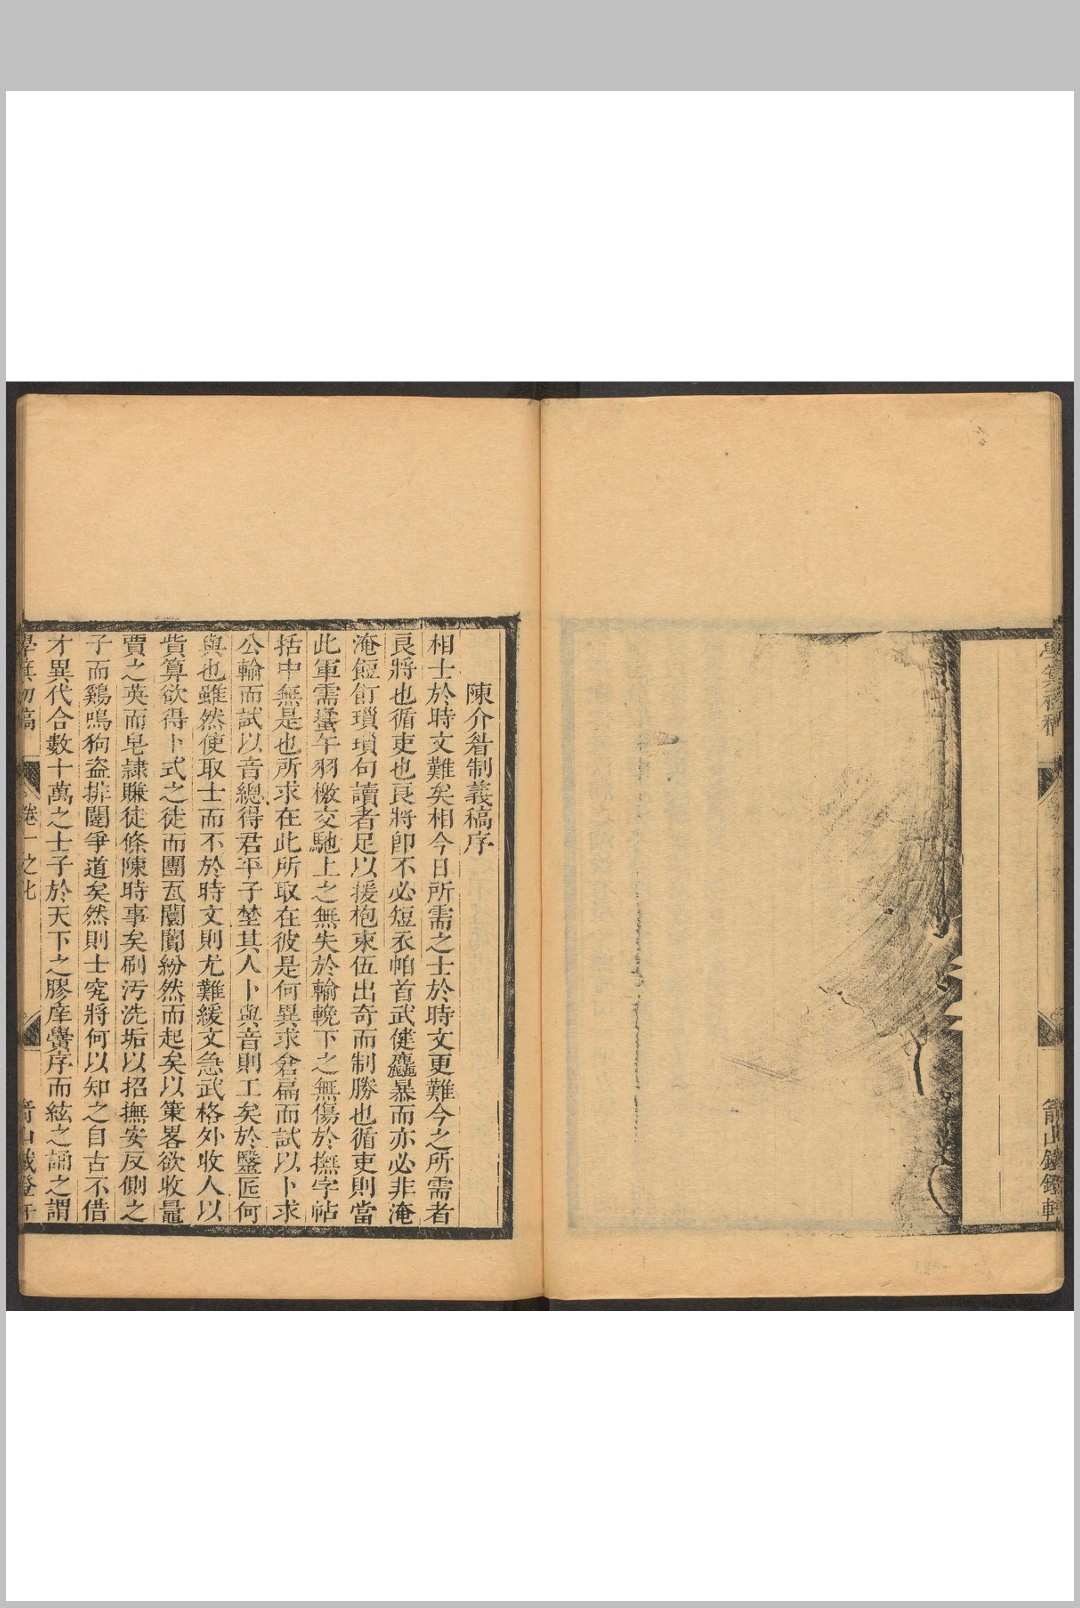 陳介眷制義稿序
相士於時文難矣相今日所需之士於時文更難今之所需者
良將也循吏也良將卽不必短衣帕首武健麤暴而亦必非淹
淹飣餖瑣瑣句讀者足以援枹束伍出奇而制勝也循吏則當
此軍需蠭午羽檄交馳上之無失於輸輓下之無傷於撫字帖
括中無是也所求在此所取在彼是何異求倉扁而試以卜求
公輸而試以音總得君平子埜其人卜與音則工矣於毉匠何
與也雖然使取士而不於時文則尤難緩文急武格外收人以
貲算欲得卜式之徒而團瓦闤闠紛然而起矣以策畧欲收鼂
賈之英而皂隷賺徒條陳時事矣刷污洗垢以招撫安反側之
子而鷄鳴狗盗排闥爭道矣然則士究將何以知之自古不借
才異代合數十萬之士子於天下之膠庠黌序而絃之誦之謂
卷一之七